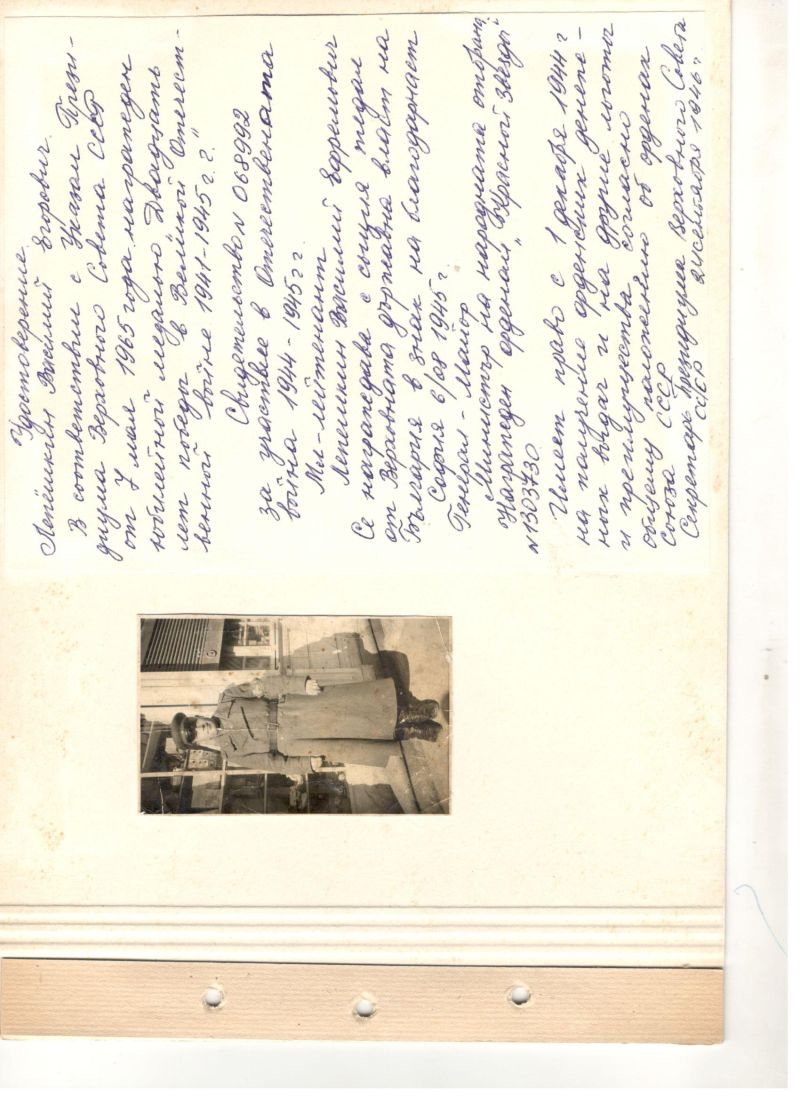 Удостоверение.
Лепёшкин Василий Егорович.
В соответствии с Указом Прези-
диума Верховного Совета СССР
от 7 мая 1965 года награжден
юбилейной медалью Двадцать
лет победы в Великой Отечест-
венной войне 1941-1945 г.г."
Свидетельство N 068992
За участие в Отечествената
война 1944-1945 г г.
Мл-лейтенант
Лепешкин Василий Ефремович
Се награждава с същия медал
от Верховната държавна власт на
България в знак на благодарност
София 6/08 1945 г.
Генерал-Майор
Министър на народната отбрана
Награжден орденом "Красной звезды"
N 1303730
Имеет право с 1 декабря 1944 г
на получение орденских денеж-
ных выдач и на другие льготы
и преимущества согласно
общему положению об орденах
Союза СССР
Секретарь Президиума Верховного Совета
СССР 1946 г.